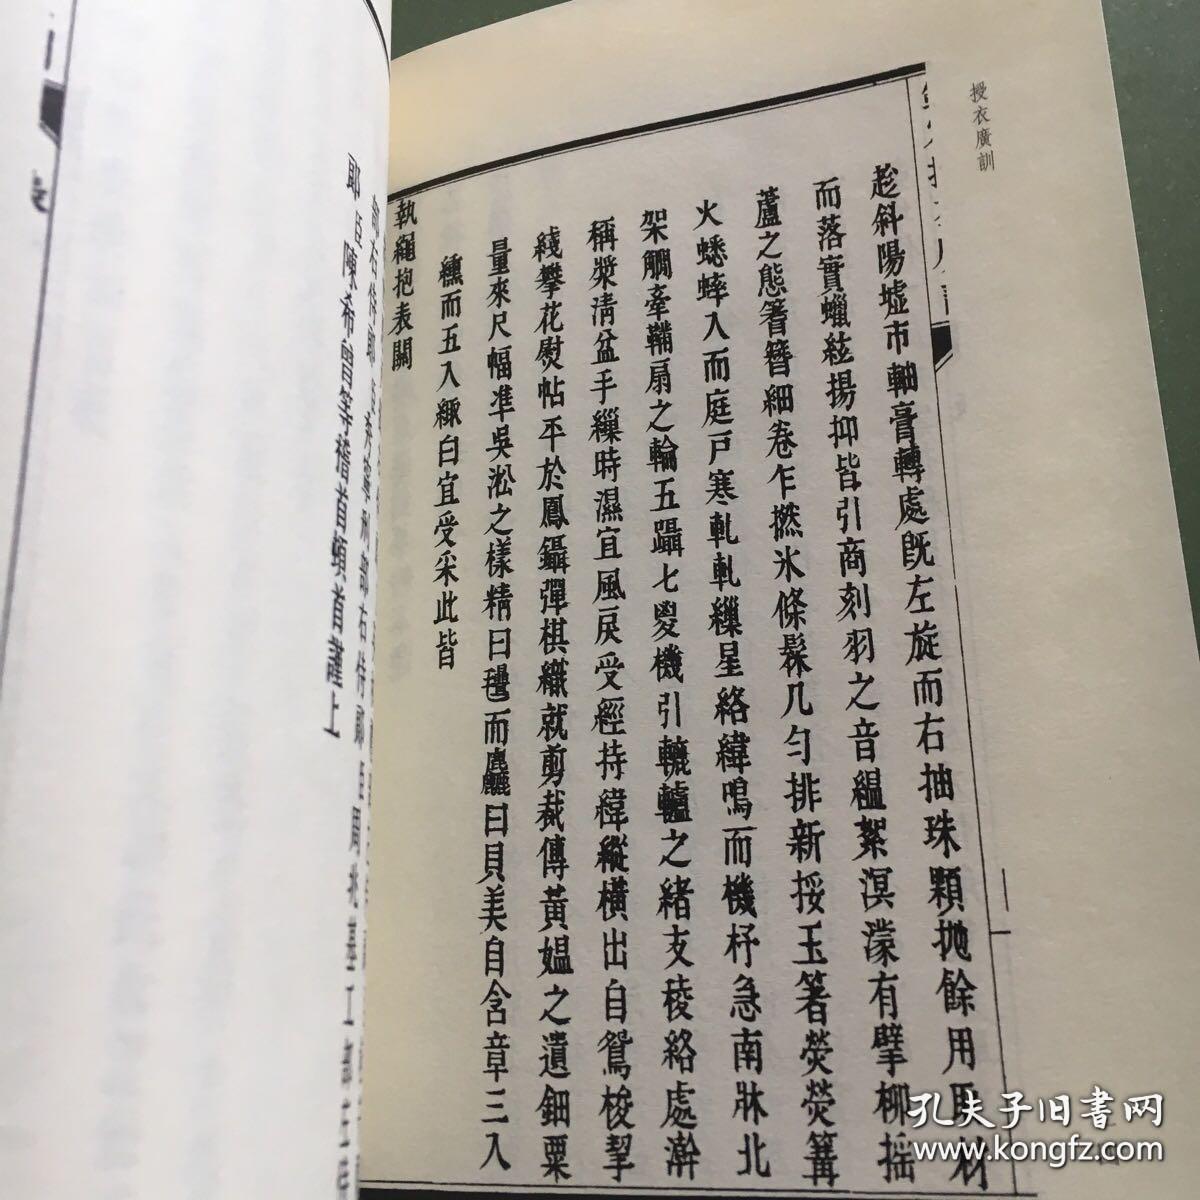 授衣廣訓
趁斜陽墟市軸膏轉處既左旋而右抽珠顆拋餘用取材
而落實蠟絃揚抑皆引商刻羽之音緼絮溟濛有擘柳搖
蘆之態箸簪細卷乍撚氷條髹几勻排新挼玉箸熒熒篝
火蟋蟀入而庭戶寒軋軋繅星絡緯鳴而機杼急南牀北
架胹牽鞴扇之輪五躡七㚇機引轆轤之緒支稜絡處澣
稱漿清盆手繅時濕宜風戾受經持緯縱橫出自鴛梭挈
綫攀花熨帖平於鳳鑷彈棋織就剪裁傳黃媼之遺鈿粟
量來尺幅準吳淞之樣精曰氎而麤曰貝美自含章三入
纁而五入緅白宜受采此皆
執繩抱表闕
右侍郎臣 刑部右侍郎臣周兆基工部左
郎臣陳希曾等稽首頓首謹上
孔夫子旧書网
www.kongfz.com